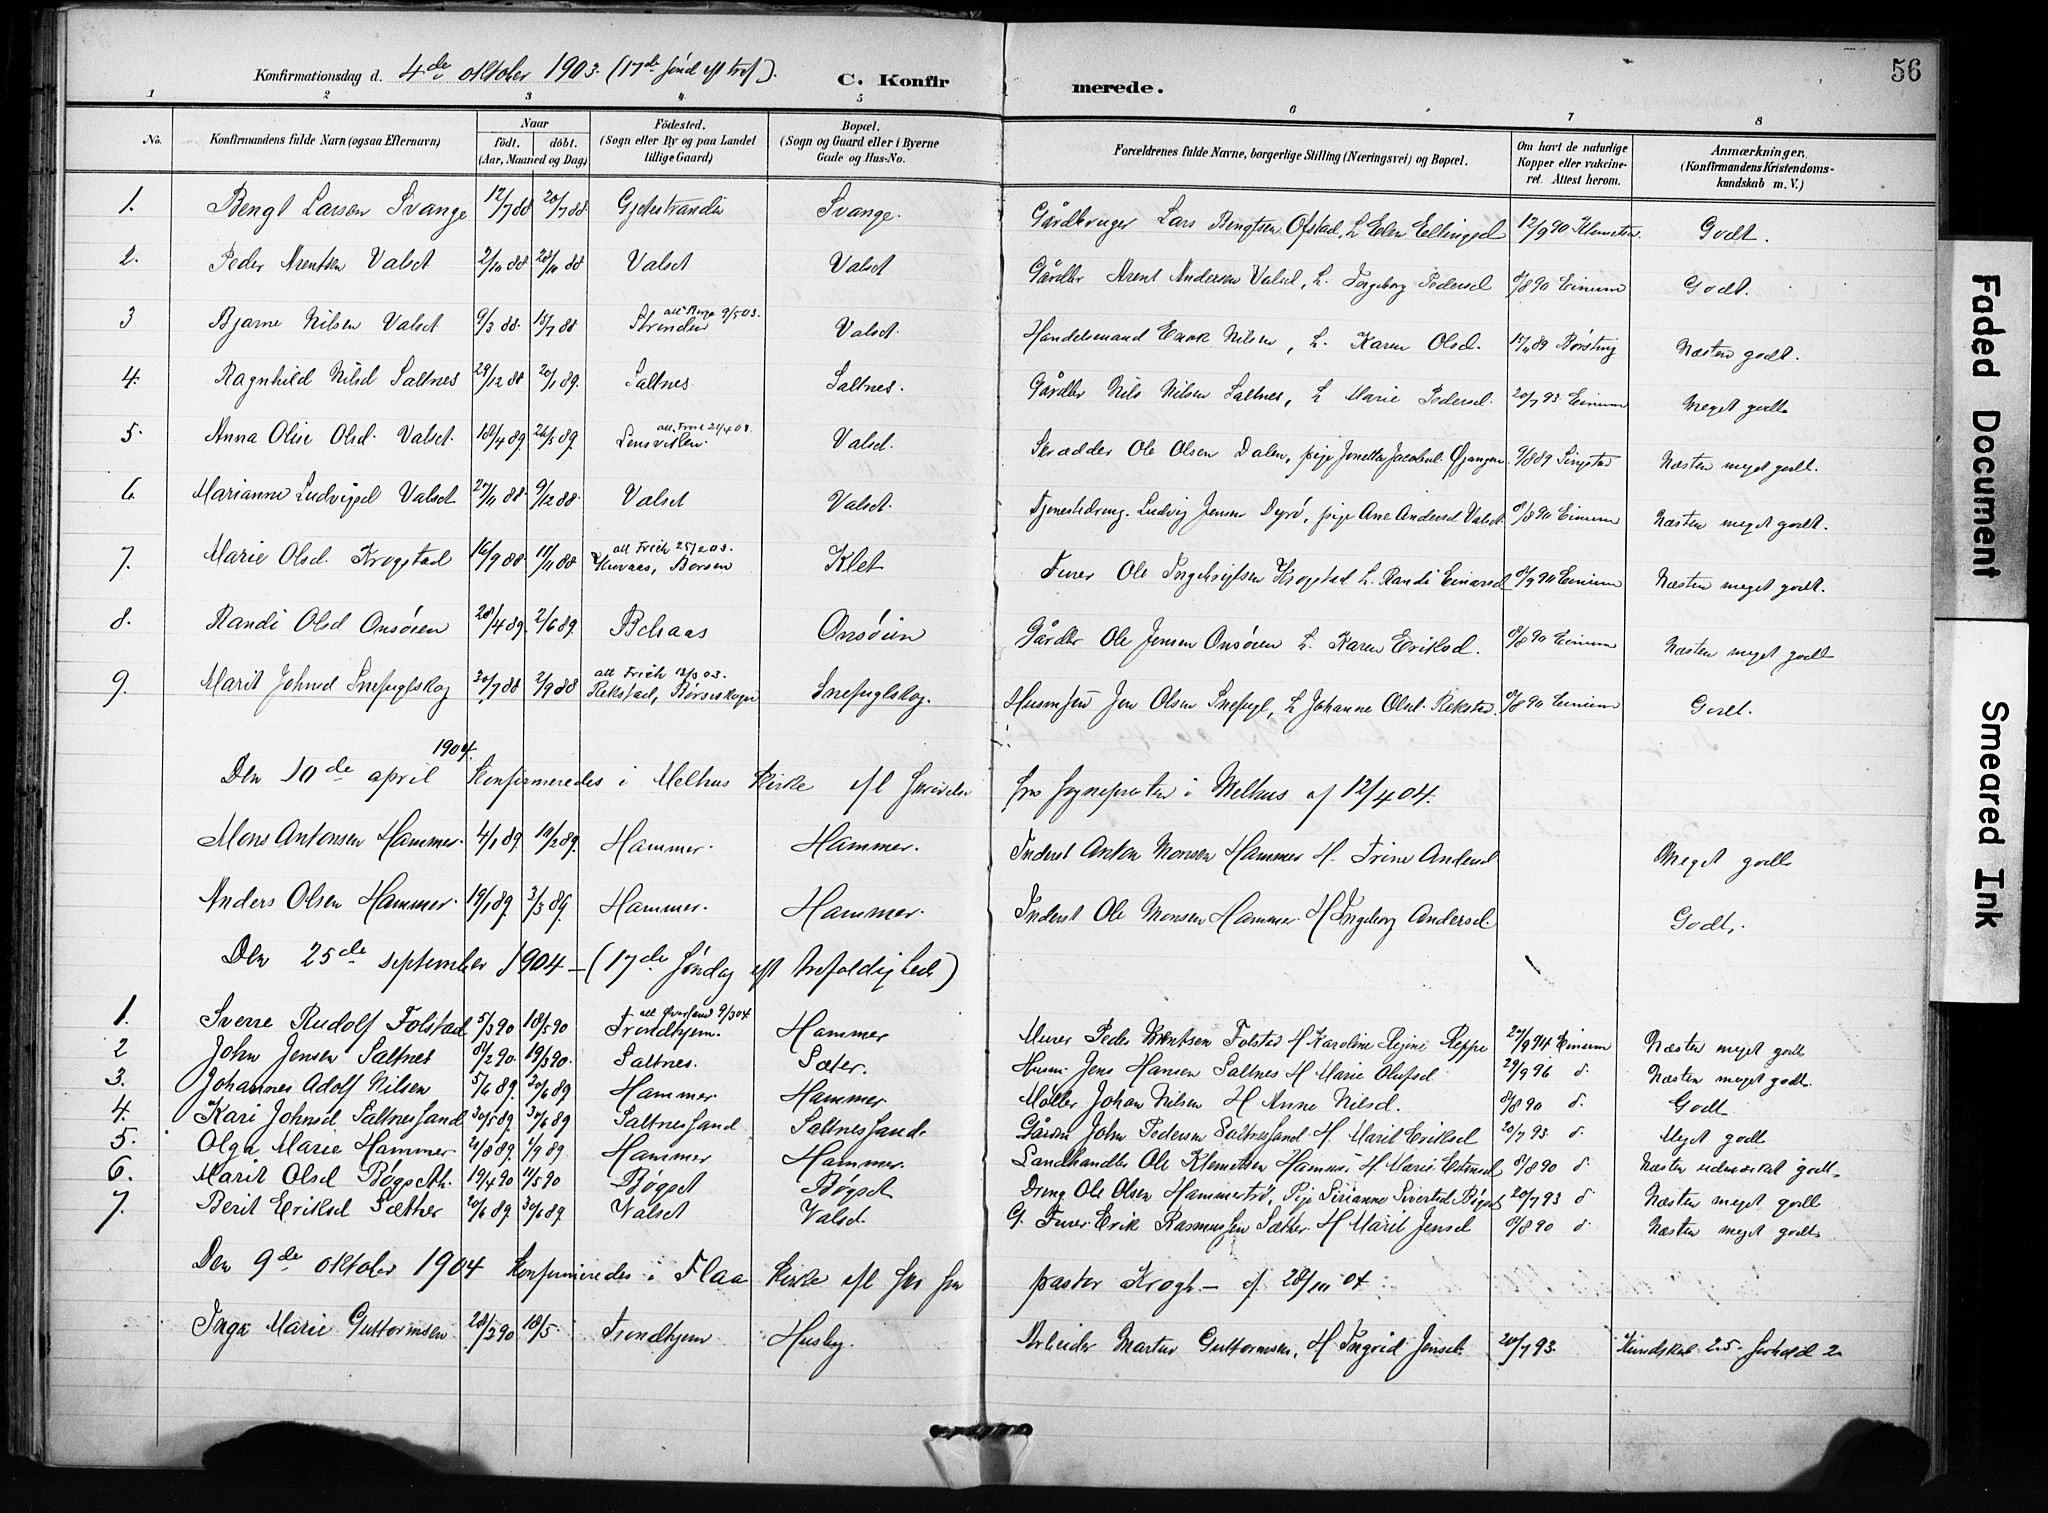 56
Konfirmationsdag d. 4de oktober 1903. (17de sønd eft tref).
C. Konfirmerede.
1 2 3 4 5 6 7 8
No. Konfirmandens fulde Navn (ogsaa Efternavn) Naar født. døbt. (Aar, Maaned og Dag) Födested. (Sogn eller By og paa Landet tillige Gaard) Bopæl. (Sogn og Gaard eller i Byerne Gade og Hus-No. Forældrenes fulde Navne, borgerlige Stilling (Næringsvei) og Bopæl. Om havt de naturlige Kopper eller vakcineret. Attest herom. Anmærkninger. (Konfirmandens Kristendomskundskab m. V.)
1. Bengt Larsen Svange 12/7 88 20/7 88. Gjetestranden Svange. Gårdbruger Lars Bengtsen Ofstad, L Elen Ellingsd 12/9 90 Klemetsen Godt.
2. Peder Arentsen Valset 2/10 88 28/10 88 Valset Valset Gårdbr Arent Andersen Valset, L. Ingeborg Pedersd 8/8 90 Einum Godt.
3 Bjarne Nilsen Valset 9/3 88. 15/7 88 Strinden Valset. Handelsmand Enok Nilsen, L. Karen Olsd. Næsten godt.
4. Ragnhild Nilsd Saltnes 29/12 88 20/1 89. Saltnes Saltnes. Gårdbr Nils Nilsen Saltnes, L Marie Pedersd. 20/7 93 Einum Meget godt
5. Anna Olise Olsd. Valset. 18/4 89. 26/5 89. Lensviken Valset. Skrædder Ole Olsen Dalen, pige Jonetta Jacobsd. Øjangen 9/8 89 Singstad Næsten meget godt.
6. Marianne Ludvigsd Valset 27/11 88. 9/12 88. Valset Valset. Tjenestedreng. Ludvig Jensen Dyrø, pige Ane Andersd Valset 8/8 90 Einum Næsten meget godt.
7. Marie Olsd. Krogstad 16/9 88. 11/11 88 att Frich 25/2 03. Børsen Klet Furer Ole Ingebrigtsen Krogstad L. Randi Einarsd 8/9 90 Einum Næsten meget godt.
8. Randi Olsd Onsøien 28/4 89. 2/6 89. Belsaas Onsøien Gårdbr Ole Jensen Onsøien L. Karen Eriksd. 8/8 90 Einum Næsten meget godt
9. Marit Johnsd Snefuglskog 30/7 88 2/9 88 att Frich 12/3 03. Rekstad, Børseskogn Snefuglskog. Husmsøn Jon Olsen Snefugl, L Johanne Olsd. Rekstad. 8/8 90 Einum Godt.
Den 10de april 1904. Konfirmeredes i Melhus kirke efl skrivelse fra sognepræsten i Melhus af 12/4 04.
Mons Antonsen Hammer. 4/1 89. 10/2 89. Hammer. Hammer. Inderst Anton Monsen Hammer H. Trine Andersd Meget godt
Anders Olsen Hammer. 19/1 89. 3/3 89. Hammer. Hammer. Inderst Ole Monsen Hammer. H Ingeborg Andersd. Godt.
Den 25de september 1904 – (17de søndag eft trefoldighed)
1. Sverre Rudolf Folstad 5/3 90 18/5 90 Trondhjem. Hammer Murer Peder Folstad H Karoline Regine Reppe 20/9 94 Einum Næsten meget godt
2 John Jensen Saltnes 8/2 90. 19/3 90. Saltnes. Sæter. Husm. Jens Hansen Saltnes H Marie Olufsd 29/9 96 d. Næsten meget godt.
3. Johannes Adolf Nilsen 5/6 89. 30/6 89 Hammer Hammer Møller Johan Nilsen H Anne Nilsd. 8/8 90 d. Godt
4. Kari Johnsd Saltnessand 30/5 89. 30/6 89 Saltnessand Saltnessand. Gårdbr John Pedersen Saltnessand H. Marit Eriksd 20/7 93. d. Meget godt
5. Olga Marie Hammer 20/8 89. 1/9 89 Hammer Hammer. Landhandler Ole Klemetsen Hammer H Marie Estensd 8/8 90 d. Næsten udmærket godt.
6. Marit Olsd Bøgseth. 19/4 90 11/5 90 Bøgset Bøgset Dreng Ole Olsen Hammerstrø, Pige Sirianne Sivertsd Bøgset 20/7 93 d. Næsten meget godt
7. Berit Eriksd Sæther 20/6 89. 30/6 89. Valset Valset. G. Furer Erik Rasmussen Sæther H Marit Jensd 8/8 90 d. Næsten meget godt
Den 9de oktober 1904 konfirmeredes i Flaa kirke efl pastor Krogh – af 28/10 04.
Inga Marie Guttormsen 28/2 90 18/5. Trondhjem Husby. Arbeider Martin Guttormsen, H Ingrid Jensd. 20/7 93. Kundskab 2.5. forhold 2
Faded Document
Smeared Ink